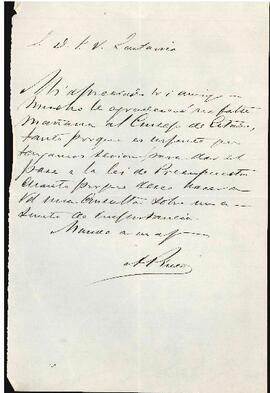 S. D. F. V.
Mi apreciado
mucho le agradeceré no falte
mañana al Consejo de Estado,
tanto porque es urgente que
tengamos sesion para dar el
pase a la lei de Presupuestos
cuanto porque deseo hacer a
Vd una consulta sobre un a-
sunto de importancia.
Mande a su af